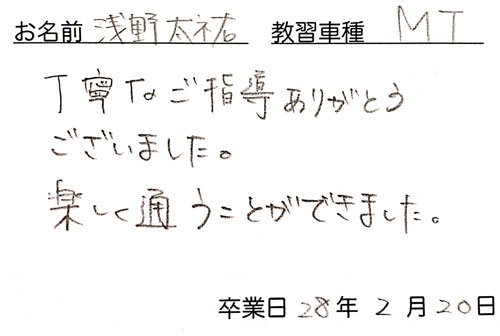 お名前 浅野太祐 教習車種 MT
丁寧なご指導ありがとう
ございました。
楽しく通うことができました。
卒業日 28年 2月 20日